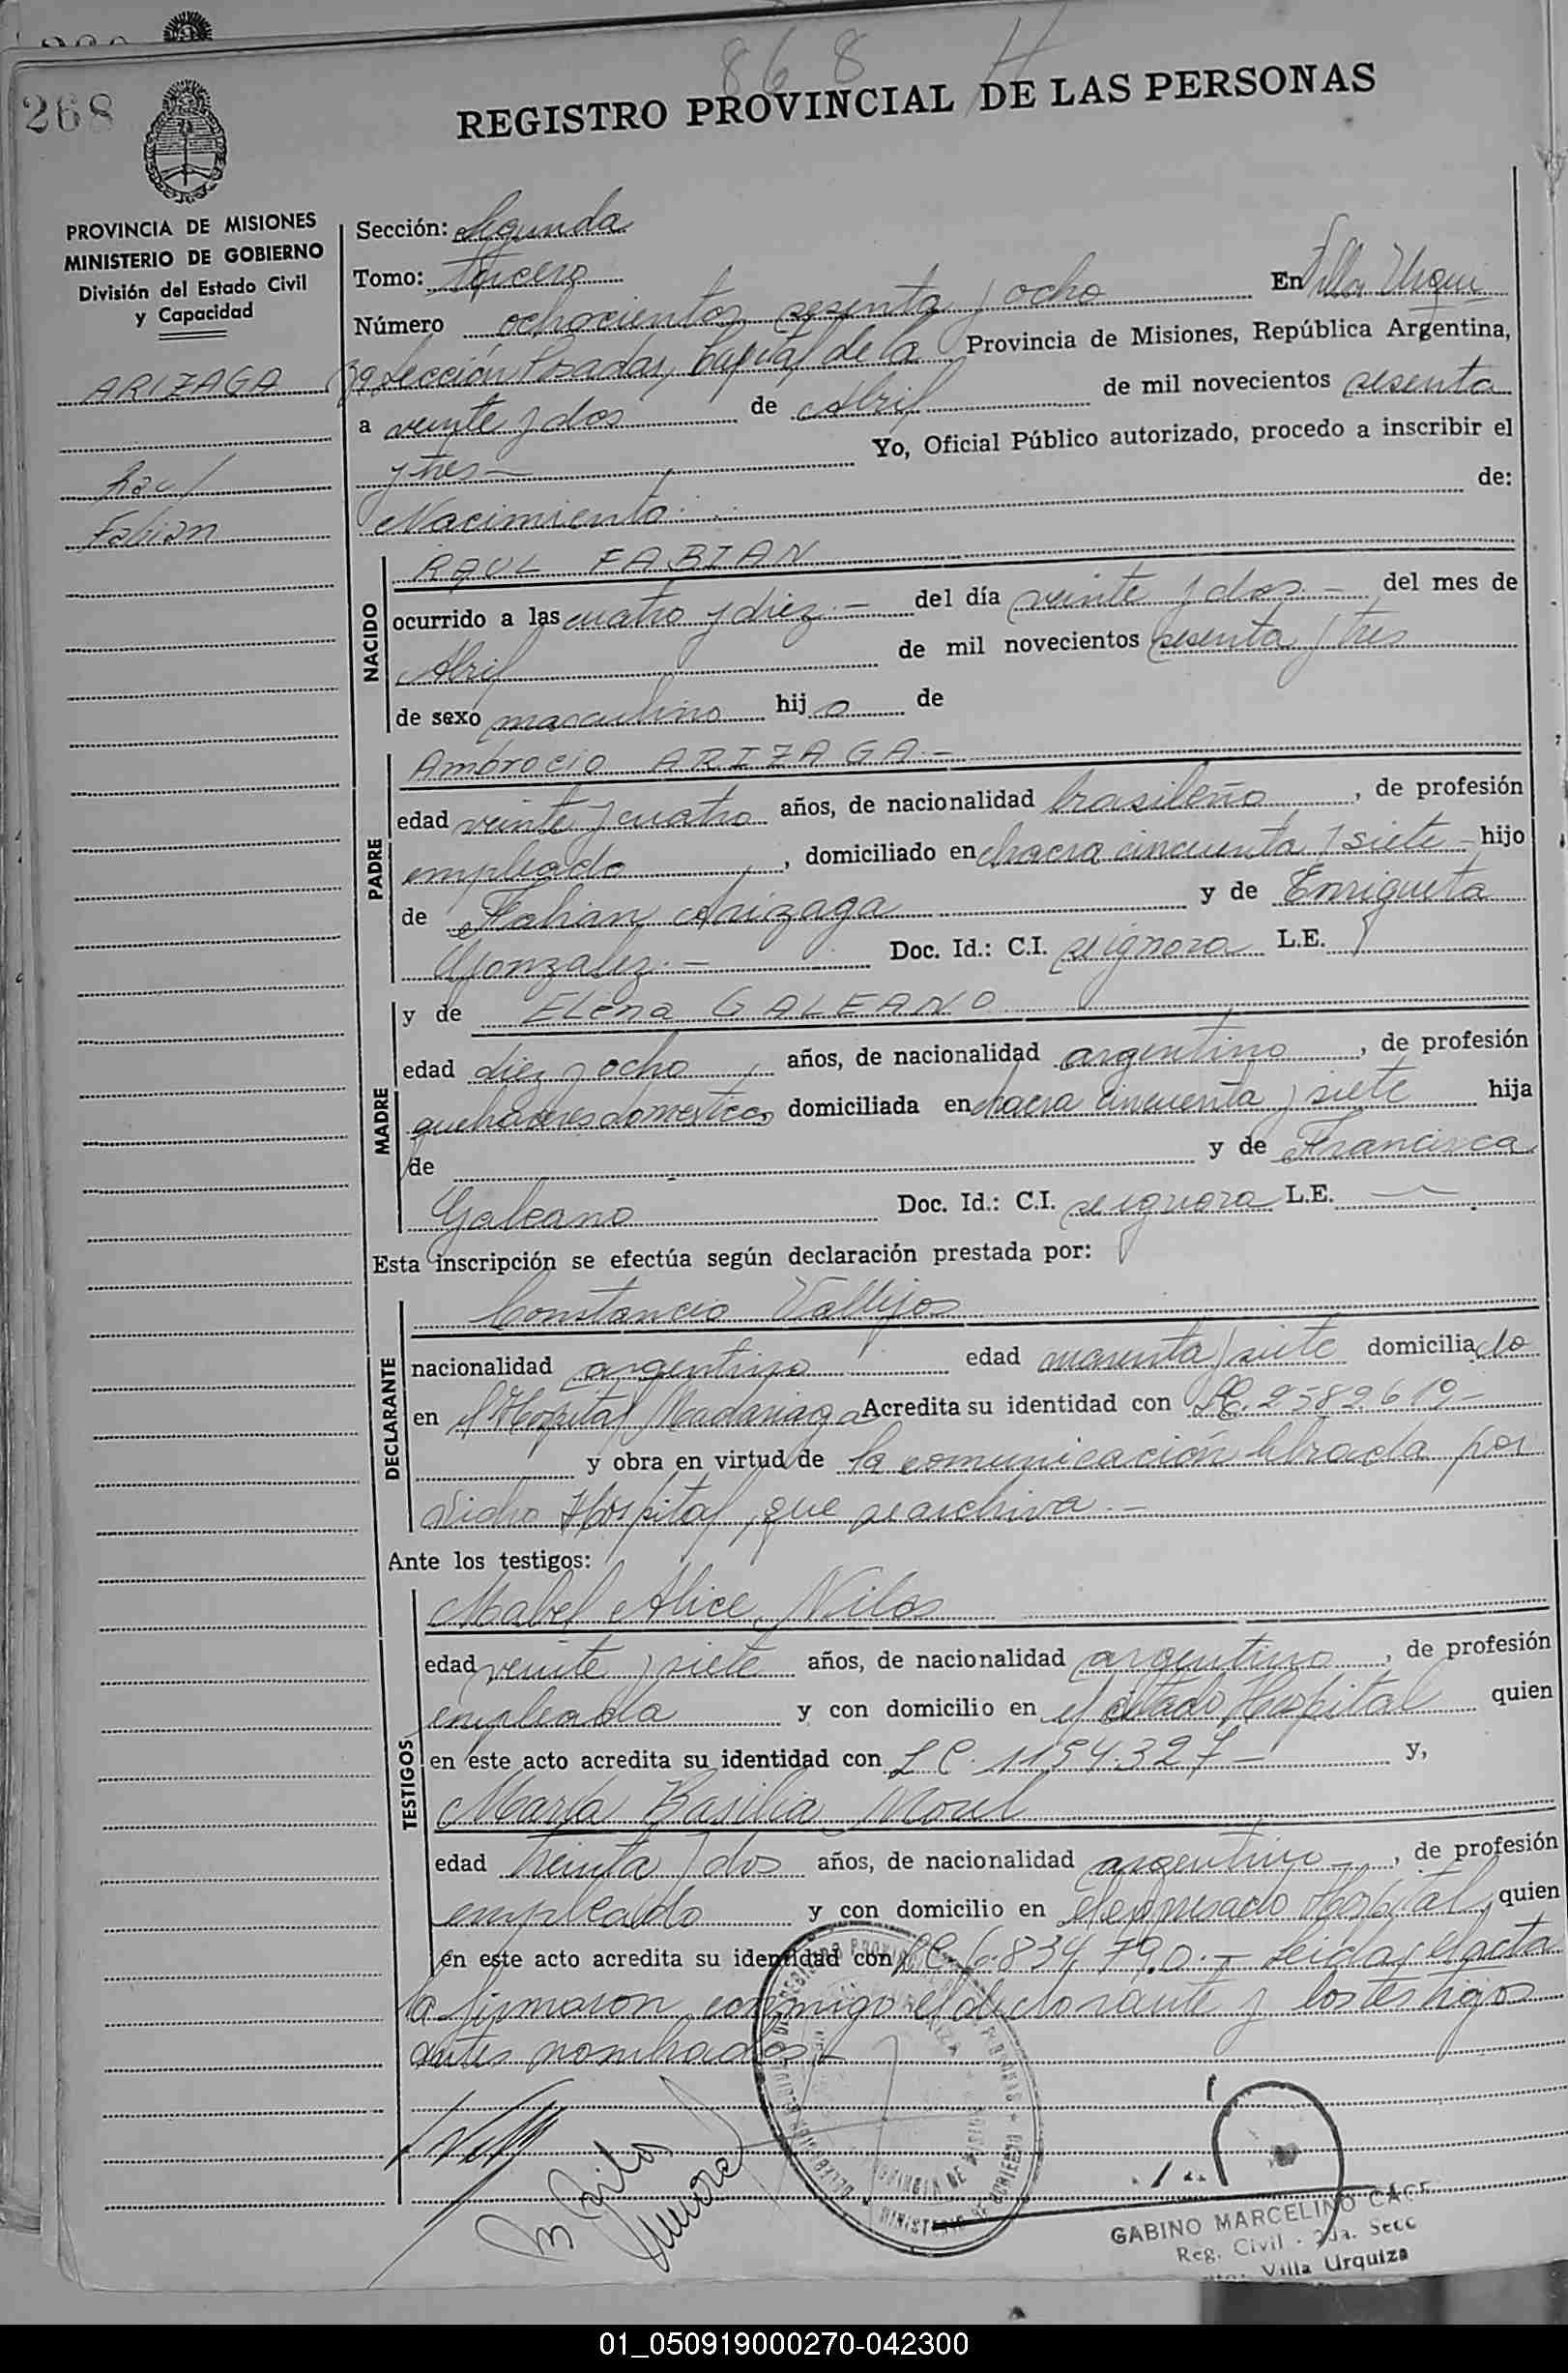 868 H
268
REGISTRO PROVINCIAL DE LAS PERSONAS
PROVINCIA DE MISIONES
MINISTERIO DE GOBIERNO
División del Estado Civil
y Capacidad
ARIZAGA
Raul
Fabian
Sección: Segunda
Tomo: Tercero
Número ochocientos sesenta y ocho En Villa Urqui
za Sección Posadas, Capital de la Provincia de Misiones, República Argentina,
a veinte y dos de Abril de mil novecientos sesenta
y tres.— Yo, Oficial Público autorizado, procedo a inscribir el
Nacimiento de:
NACIDO
RAUL FABIAN
ocurrido a las cuatro y diez.— del día veinte y dos.— del mes de
Abril de mil novecientos sesenta y tres
de sexo masculino hijo de
PADRE
Ambrocio ARIZAGA.—
edad veinte y cuatro años, de nacionalidad brasileño, de profesión
empleado, domiciliado en chacra cincuenta y siete- hijo
de Fabian Arizaga y de Enriqueta
Gonzalez.— Doc. Id.: C.I. se ignora L.E.
MADRE
y de Elena GALEANO
edad diez y ocho años, de nacionalidad argentino, de profesión
quehaceres domesticos domiciliada en chacra cincuenta y siete hija
de y de Francisca
Galeano Doc. Id.: C.I. se ignora L.E. —
Esta inscripción se efectúa según declaración prestada por:
DECLARANTE
Constancio Vallejos
nacionalidad argentino edad cuarenta y siete domiciliado
en el Hospital Madariaga Acredita su identidad con 2582619-
y obra en virtud de la comunicación librada por
dicho Hospital, que se archiva.—
Ante los testigos:
TESTIGOS
Mabel Alice Nilos
edad veinte y siete años, de nacionalidad argentino, de profesión
empleada y con domicilio en el citado Hospital quien
en este acto acredita su identidad con L C. 1154.327— y,
Maria Basilia Morel
edad treinta y dos años, de nacionalidad argentino, de profesión
empleado y con domicilio en el expresado Hospital, quien
en este acto acredita su identidad con LC 6.834.790.— Leida el acta
la firmaron conmigo el declarante y los testigos
antes nombrados.—
PROVINCIA DE MISIONES
MINISTERIO DE GOBIERNO
GABINO MARCELINO
Reg. Civil - 2da. Secc
Villa Urquiza
01_050919000270-042300